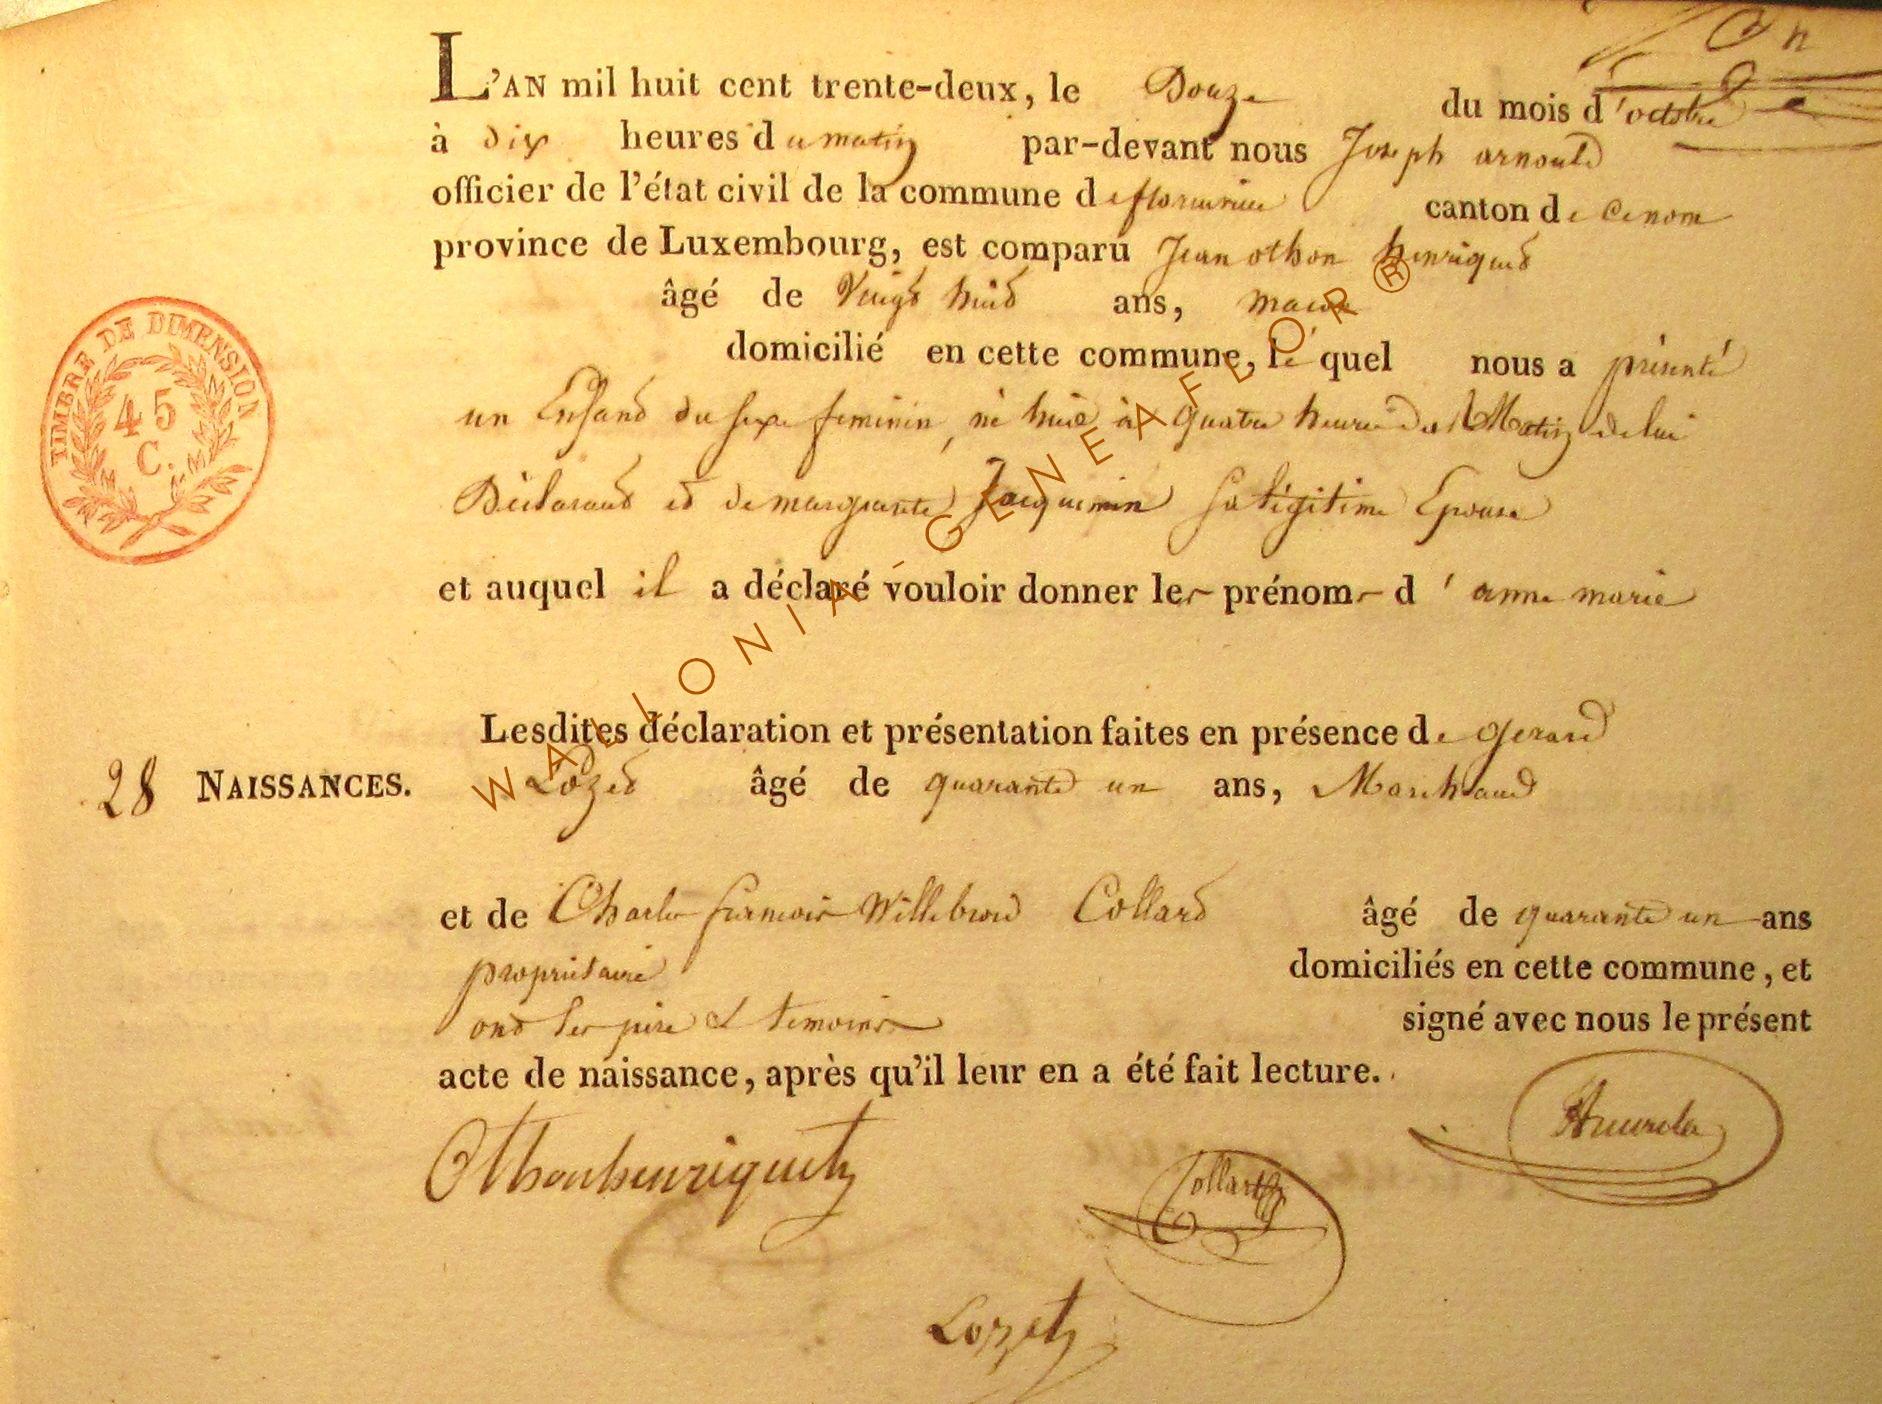 L'AN mil huit cent trente-deux, le Douze du mois d'octobre
à dix heures du matin par-devant nous Joseph arnould
officier de l'état civil de la commune de florenville canton de ce nom
province de Luxembourg, est comparu Jean othon henriquet
âgé de Vingt huit ans, macon
domicilié en cette commune, lequel nous a présenté
un Enfant du sexe feminin, né hui à quatre heures du Matin de lui
Déclarant et de marguerite Jacquemin sa légitime Epouse
et auquel il a déclaré vouloir donner les prénoms d'anne marie
Lesdites déclaration et présentation faites en présence de gerard
28 NAISSANCES.
Lozet âgé de quarante un ans, Marchand
et de Charles francois Willebrord Collard âgé de quarante un ans
propriétaire domiciliés en cette commune, et
ont les père et temoins signé avec nous le présent
acte de naissance, après qu'il leur en a été fait lecture.
Othonhenriquet
Collard
Lozet
TIMBRE DE DIMENSION
45
C.
WALLONIA-GENEAFLOR®